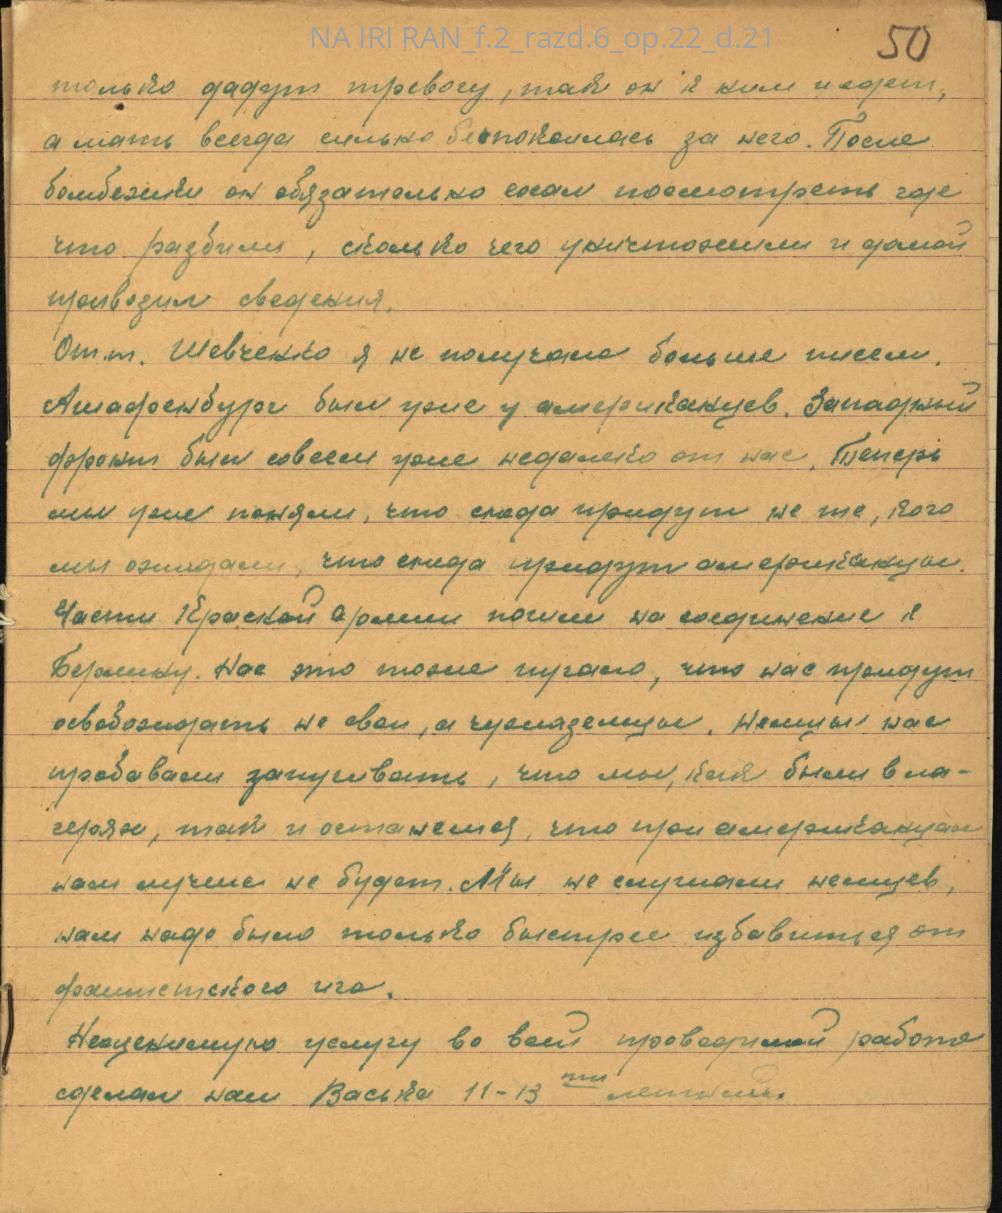 NA IRI RAN_f.2_razd.6_op.22_d.21
50
только дадут тревогу, так он к ним идет,
а мать всегда сильно беспокоилась за него. После
бомбежки он обязательно ехал посмотреть где
что разбили, сколько чего уничтожили и домой
привозил сведения.
От т. Шевченко я не получала больше писем.
Ашафенбург был уже у американцев. Западный
фронт был совсем уже недалеко от нас. Теперь
мы уже поняли, что сюда придут не те, кого
мы ожидали, что сюда придут американцы.
Части Красной Армии пошли на соединение к
Берлину. Нас это тоже пугало, что нас придут
освобождать не свои, а чужеземцы. Немцы нас
пробовали запугивать, что мы, как были в ла-
герях, так и останемся, что при американцах
нам лучше не будет. Мы не слушали немцев,
нам надо было только быстрее избавиться от
фашистского ига.
Неоценимую услугу во всей проводимой работе
сделал нам Васька 11-13 ти летний.